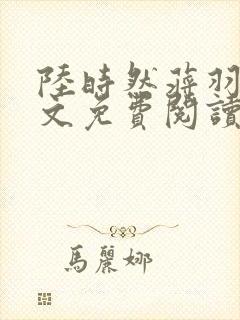 陸時然蔣羽
文免費閱讀
馬麗娜